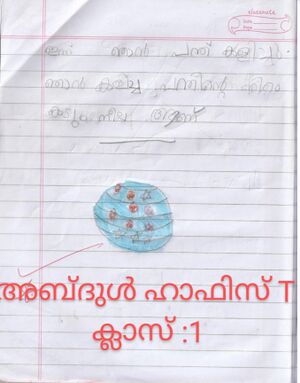 classmate
Date
Page
ഇന്ന് ഞാൻ പന്ത് കളിച്ചു.
ഞാൻ കളിച്ച പന്തിന്റെ നിറം
കടും നീല ആണ്
അബ്ദുൾ ഹാഫിസ് T
ക്ലാസ് :1